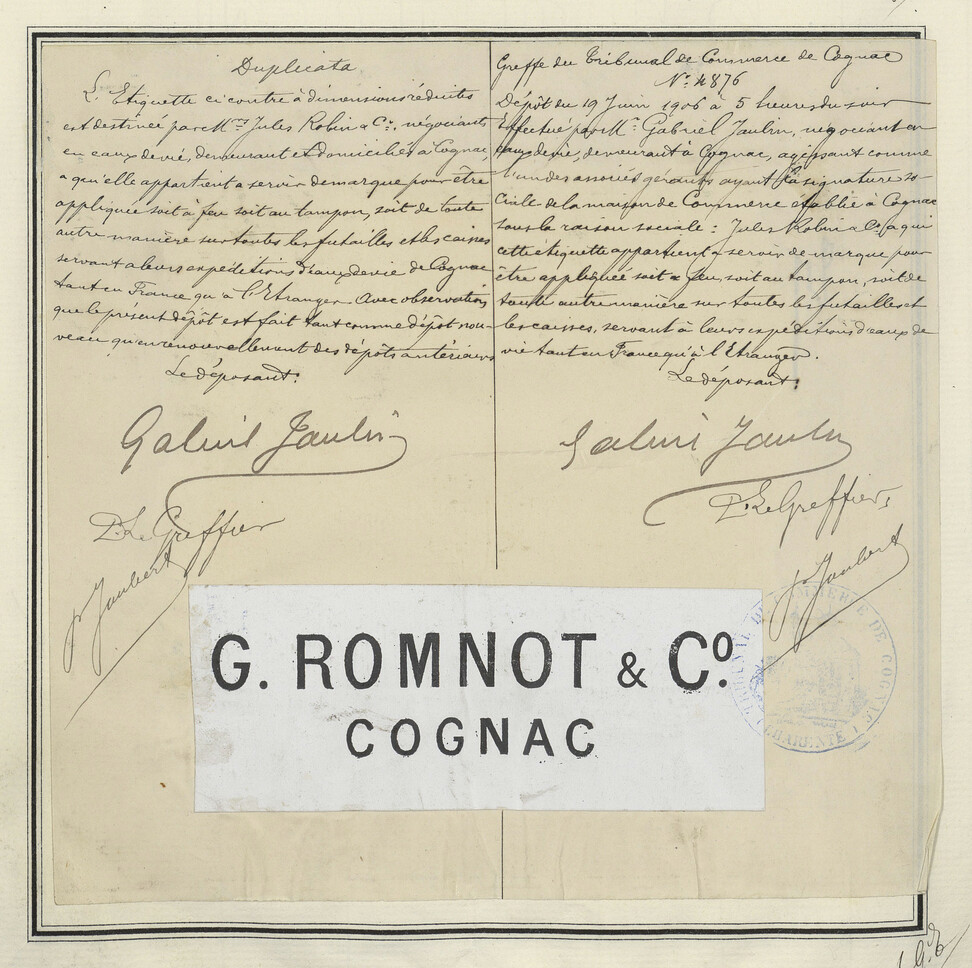 Duplicata
L'Etiquette ci contre à dimensions réduites
est destinée par Mrs Jules Robin & Cie, négociants
en eaux de vie, demeurant et domiciliés à Cognac,
a qu'elle appartient a servir de marque pour être
appliquée soit à feu soit au tampon, soit de toute
autre manière sur toutes les futailles et les caisses
servant a leurs expéditions d'eaux de vie de Cognac
tant en France qu'à l'Etranger. Avec observation
que le present dépôt est fait tant comme dépôt nou-
veau qu'en renouvellement des dépôts antérieurs
Le déposant:
Gabriel Jaulin
P. Le Greffier
Jaubert
Greffe du Tribunal de Commerce de Cognac
No 4876
Dépôt du 19 Juin 1906 à 5 heures du soir
Effectué par Mr Gabriel Jaulin, négociant en
eaux de vie, demeurant à Cognac, agissant comme
l'un des associés gérants ayant la signature so-
ciale de la maison de Commerce établie à Cognac
sous la raison sociale: Jules Robin & Cie, a qui
cette étiquette appartient a servir de marque pour
être appliquée soit a feu, soit au tampon, soit de
toute autre manière sur toutes les futailles et
les caisses, servant à leurs expéditions d'eaux de
vie tant en France qu'à l'Etranger.
Le déposant:
Gabriel Jaulin
P. Le Greffier,
Jaubert
G. ROMNOT & Co.
COGNAC
TRIBUNAL DE COMMERCE DE COGNAC
CHARENTE